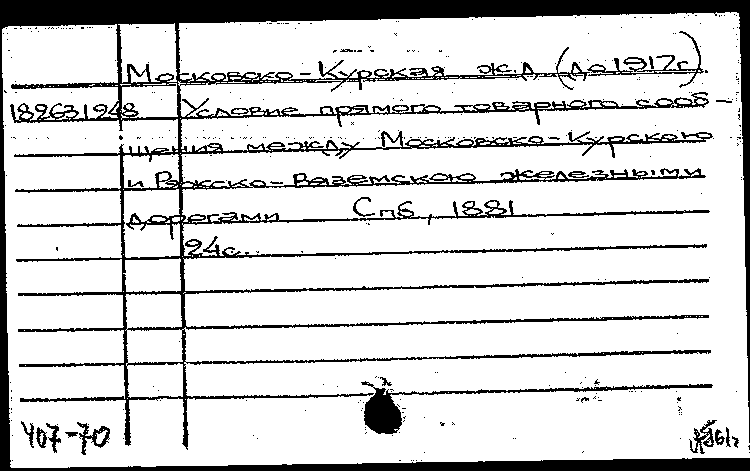 Московско-Курская ж.д. (до 1917г.)
189631948 Условие прямого товарного сооб-
щения между Московско-Курскою
и Ряжско-Вяземскою железными
дорогами Спб, 1881
24с.
407-70